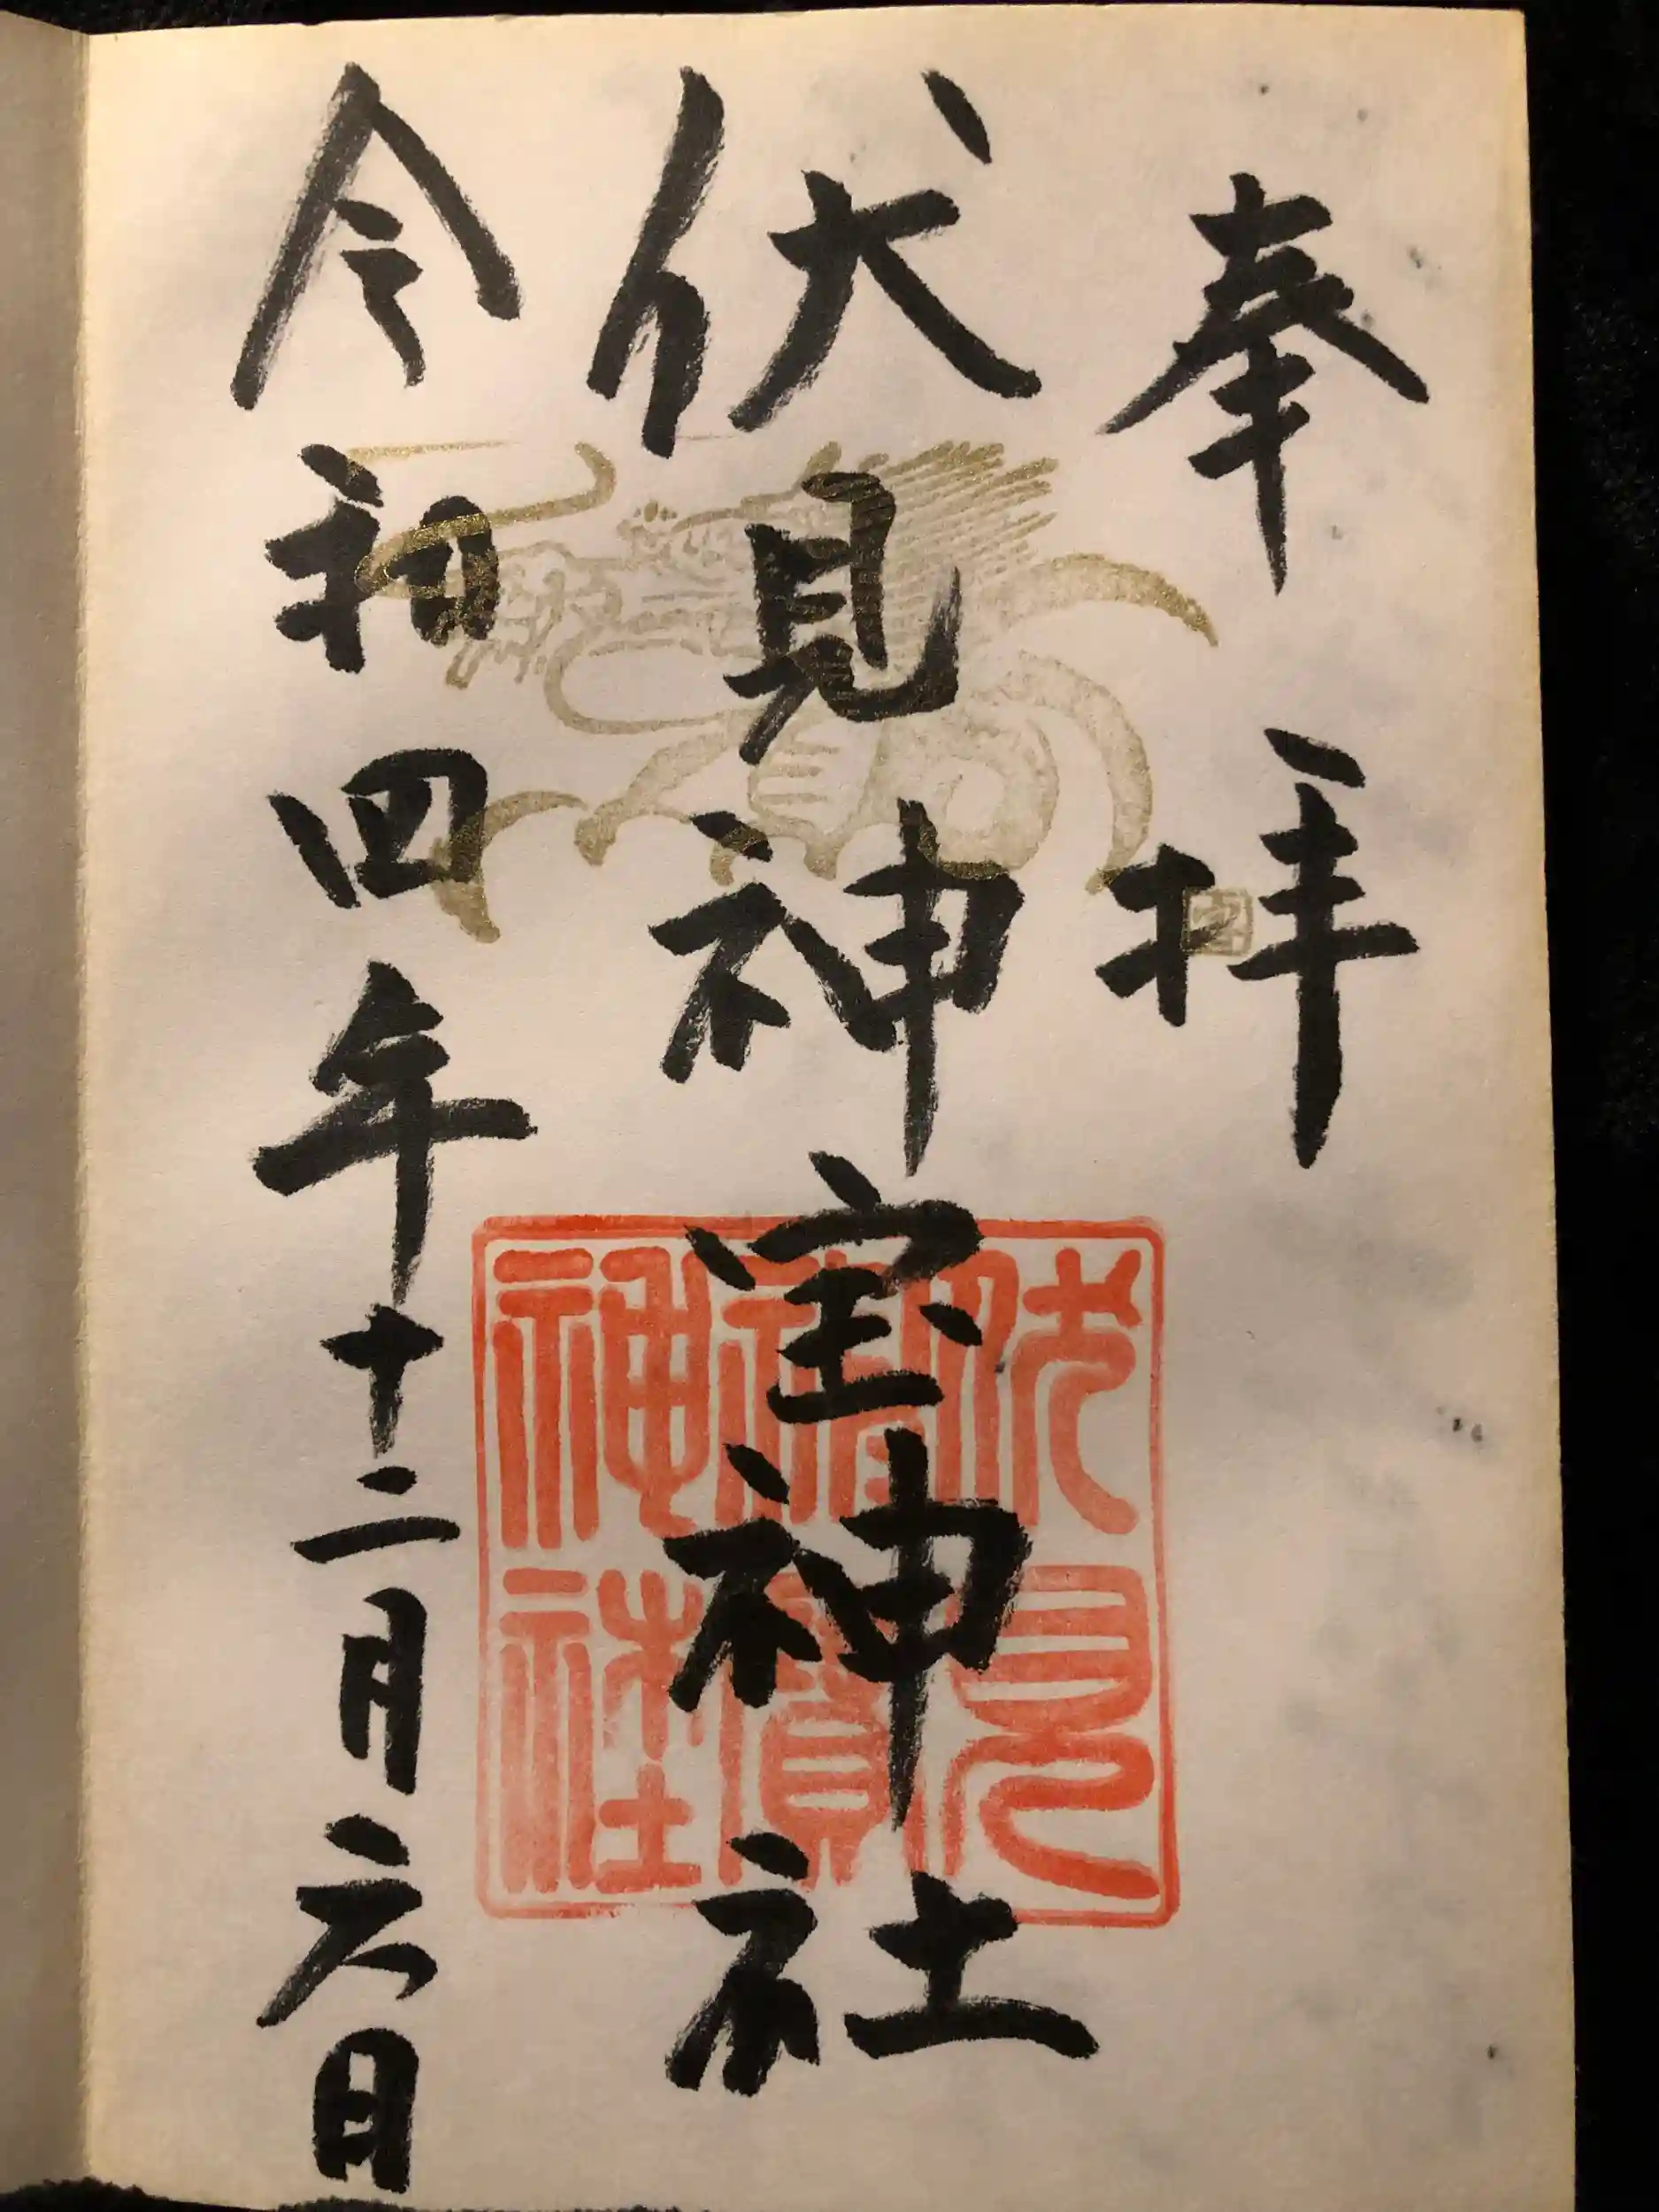 奉拝
伏見神宝神社
令和四年十二月六日
伏見
神寶
神社